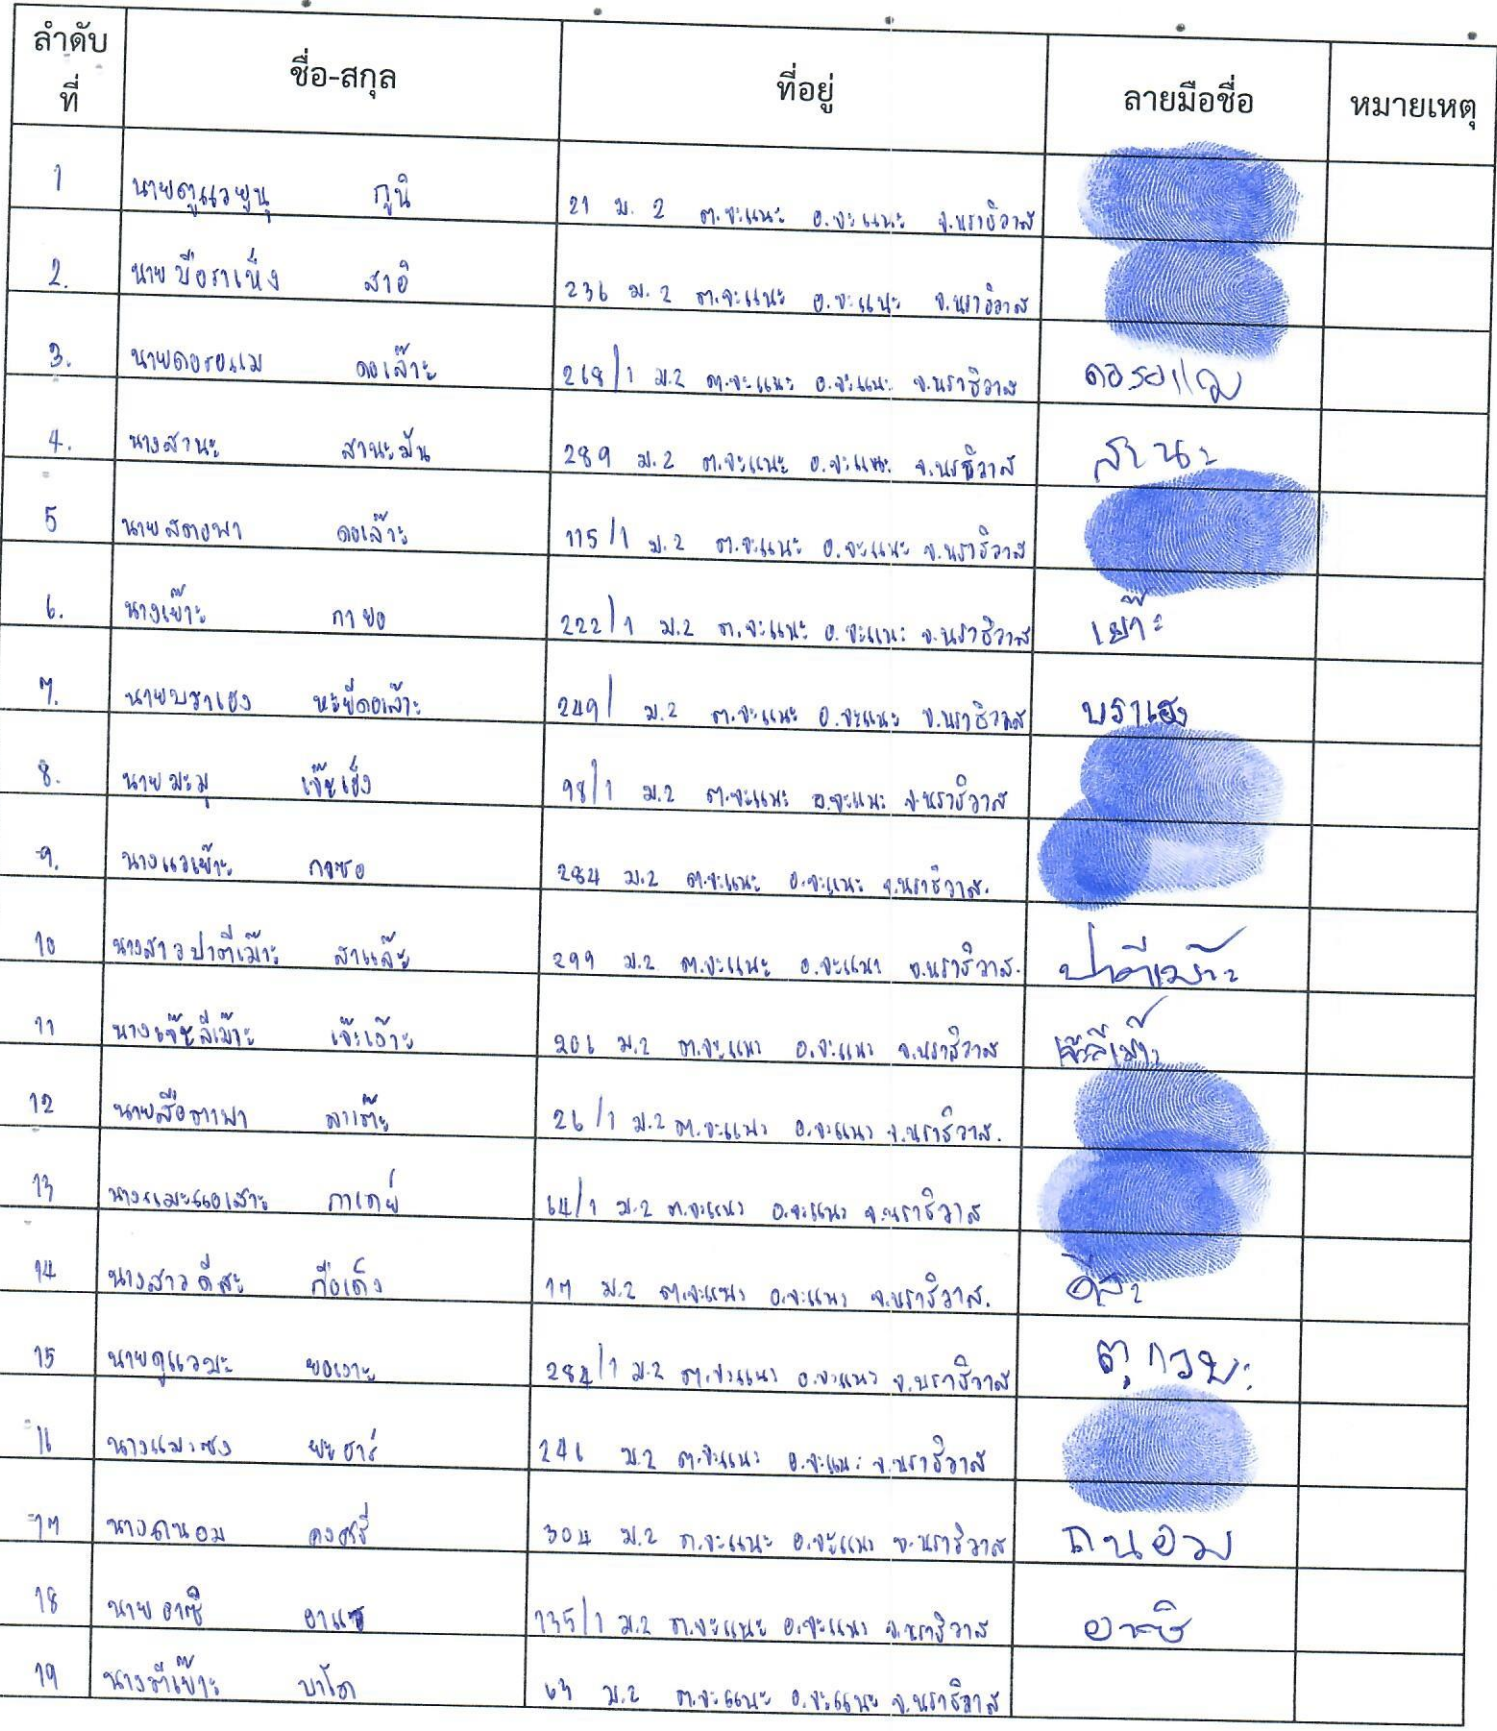 ลำดับที่ ชื่อ-สกุล ที่อยู่ ลายมือชื่อ หมายเหตุ
1 นายตูแวยูนุ กูนิ 21 ม. 2 ต.จะแนะ อ.จะแนะ จ.นราธิวาส
2. นายบือราเห็ง สาอิ 236 ม. 2 ต.จะแนะ อ.จะแนะ จ.นราธิวาส
3. นายดอรอแม ดอเล๊าะ 268/1 ม.2 ต.จะแนะ อ.จะแนะ จ.นราธิวาส ดอรอแม
4. นางสานะ สานะมัน 289 ม.2 ต.จะแนะ อ.จะแนะ จ.นราธิวาส สานะ
5 นายสตอพา ดอเล๊าะ 115/1 ม.2 ต.จะแนะ อ.จะแนะ จ.นราธิวาส
6. นางเย๊าะ กายอ 222/1 ม.2 ต.จะแนะ อ.จะแนะ จ.นราธิวาส เย๊าะ
7. นายบราเฮง หะยีดอเล๊าะ 249/ ม.2 ต.จะแนะ อ.จะแนะ จ.นราธิวาส บราเฮง
8. นายมะมุ เจ๊ะเฮ็ง 98/1 ม.2 ต.จะแนะ อ.จะแนะ จ.นราธิวาส
9. นางแวเย๊าะ กาซอ 284 ม.2 ต.จะแนะ อ.จะแนะ จ.นราธิวาส.
10 นางสาวปาตีเม๊าะ สาแล๊ะ 299 ม.2 ต.จะแนะ อ.จะแนะ จ.นราธิวาส. ปาตีเมาะ
11 นางเจ๊ะลีเม๊าะ เจ๊ะเง๊าะ 206 ม.2 ต.จะแนะ อ.จะแนะ จ.นราธิวาส เจ๊ะลีเม๊าะ
12 นายสือตาพา สาเต๊ะ 26/1 ม.2 ต.จะแนะ อ.จะแนะ จ.นราธิวาส.
13 กาเดย์ 64/1 ม.2 ต.จะแนะ อ.จะแนะ จ.นราธิวาส
14 นางสาวดีสะ กือเด็ง 17 ม.2 ต.จะแนะ อ.จะแนะ จ.นราธิวาส. ดีสะ
15 นายตูแวมะ ยอเงาะ 284/1 ม.2 ต.จะแนะ อ.จะแนะ จ.นราธิวาส
16 นางแมะซง ยะฮาร์ 246 ม.2 ต.จะแนะ อ.จะแนะ จ.นราธิวาส
17 นางถนอม คงศรี 304 ม.2 ต.จะแนะ อ.จะแนะ จ.นราธิวาส ถนอม
18 นายอาซิ อาแซ 135/1 ม.2 ต.จะแนะ อ.จะแนะ จ.นราธิวาส อาซิ
19 นางตีเย๊าะ บาโด 63 ม.2 ต.จะแนะ อ.จะแนะ จ.นราธิวาส